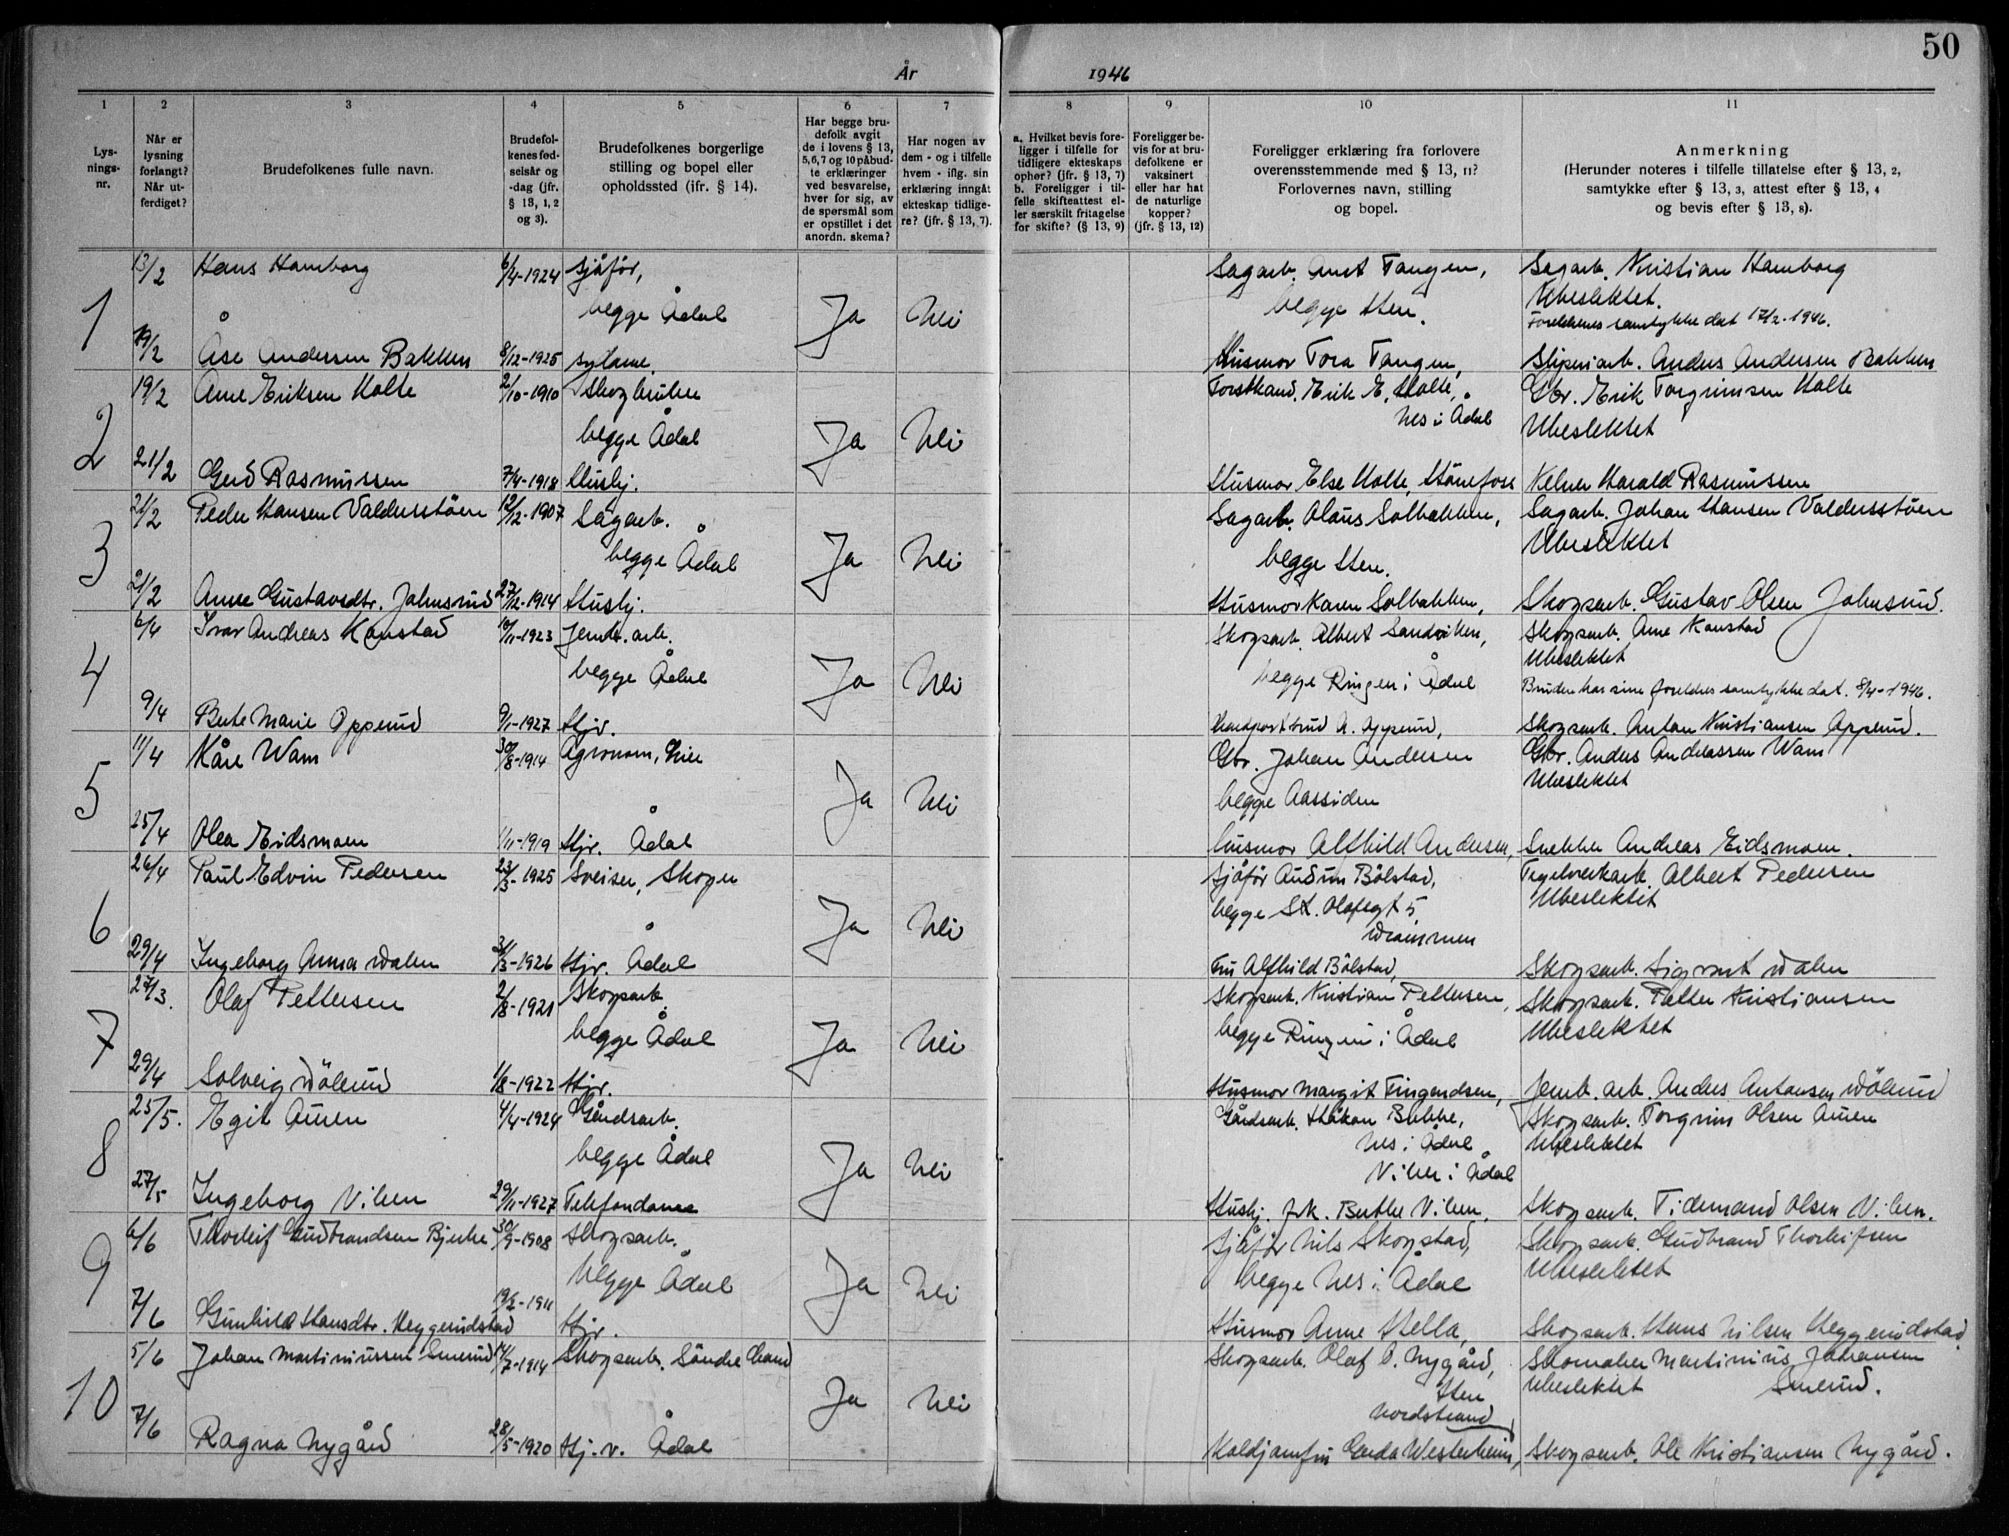 50
År 1946
1 2 3 4 5 6 7 8 9 10 11
Lys-
nings-
nr.
Når er
lysning
forlangt?
Når ut-
ferdiget?
Brudefolkenes fulle navn.
Brudefol-
kenes fød-
selsår og
-dag (jfr.
§ 13, 1, 2
og 3).
Brudefolkenes borgerlige
stilling og bopel eller
opholdssted (ifr. § 14).
Har begge bru-
defolk avgit
de i lovens § 13,
5, 6, 7 og 10 påbud-
te erklæringer
ved besvarelse,
hver for sig, av
de spørsmål som
er opstillet i det
anordn. skema?
Har nogen av
dem - og i tilfelle
hvem - iflg. sin
erklæring inngåt
ekteskap tidlige-
re? (jfr. § 13, 7).
a. Hvilket bevis fore-
ligger i tilfelle for
tidligere ekteskaps
ophør? (jfr. § 13, 7)
b. Foreligger i til-
felle skifteattest el-
ler særskilt fritagelse
for skifte? (§ 13, 9)
Foreligger be-
vis for at bru-
defolkene er
vaksinert
eller har hat
de naturlige
kopper?
(jfr. § 13, 12)
Foreligger erklæring fra forlovere
overensstemmende med § 13, 11?
Forlovernes navn, stilling
og bopel.
Anmerkning
(Herunder noteres i tilfelle tillatelse efter § 13, 2,
samtykke efter § 13, 3, attest efter § 13, 4
og bevis efter § 13, 8).
1
13/2 Hans Hamborg 6/4-1924 sjåfør, Sagarb. Amt Tangen, Sagarb. Kristian Hamborg
begge Ådal Ja Nei begge Hen. Ubeslektet.
Foreldrenes samtykke dat 17/2-1946.
19/2 Åse Andersen Bakken 8/12-1925 sydame. Husmor Tora Tangen, Sliperiarb. Anders Andersen Bakken
2
19/2 Arne Eriksen Holte 2/10-1910 Skogbruker Forstkand. Erik E. Holte, Gbr. Erik Torgrimsen Holte
begge Ådal Ja Nei Nes i Ådal Ubeslektet
21/2 Gerd Rasmussen 7/4-1918 Hushj. Husmor Else Holte, Hönefoss Kelner Harald Rasmussen
3
21/2 Peder Hansen Valdersstöen 12/12-1907 Sagarb. Sagarb. Olaus Solbakken, Sagarb. Johan Hansen Valdersstöen
begge Ådal Ja Nei begge Hen. Ubeslektet
21/2 Anne Gustavsdtr. Johnsrud 27/12-1914 Hushj. Husmor Karen Solbakken, Skogsarb. Gustav Olsen Johnsrud.
4
6/4 Ivar Andreas Kanstad 10/11-1923 Jernb. arb. Skogsarb. Albert Sandviken, Skogsarb. Arne Kanstad
begge Ådal Ja Nei begge Ringen i Ådal Ubeslektet
Bruden har sine foreldres samtykke dat. 8/4-1946.
9/4 Berte Marie Opperud 9/1-1927 Hjv. Landpostbud A. Opperud, Skogsarb. Anton Kristiansen Opperud.
5
11/4 Kåre Wam 30/8-1914 Agronom, Lier Gbr. Johan Andersen Gbr. Anders Andreassen Wam
Ja Nei begge Aassiden Ubeslektet
25/4 Olea Eidsmoen 1/11-1919 Hjv. Ådal husmor Alfhild Andersen, Snekker Andreas Eidsmoen.
6
26/4 Paul Edvin Pedersen 23/3-1925 Sveiser, Skoger Sjåför Audun Bölstad, Teglverkarb. Albert Pedersen
Ja Nei begge St. Olafsgt 5 Drammen Ubeslektet
29/4 Ingeborg Anna Dalen 31/3-1926 Hjv. Ådal Fru Alfhild Bölstad, Skogsarb. Sigvart Dalen
7
27/3. Olaf Pettersen 2/8-1921 Skogsarb. Skogsarb. Kristian Pettersen, Skogsarb. Petter Kristiansen
begge Ådal Ja Nei begge Ringen i Ådal Ubeslektet
29/4 Solveig Dölerud 1/8-1922 Hjv. Husmor Margit Fingendsen, Jernb. arb. Anders Antonsen Dölerud
8
25/5. Egil Auren 4/4-1924 Gårdsarb. Gårdsarb. Håkon Bakke, Skogsarb. Torgrim Olsen Auren
begge Ådal Ja Nei Nes i Ådal Ubeslektet
Viken i Ådal
27/5 Ingeborg Viken 29/11-1927 Telefondame Hushj. frk. Berthe Viken, Skogsarb. Tidemand Olsen Viken.
9
6/6 Thorleif Gudbrandsen Bjerke 30/9-1908 skogsarb. Sjåför Nils Skogstad, Skogsarb. Gudbrand Thorleifsen
begge Ådal Ja Nei begge Nes i Ådal Ubeslektet
7/6 Gunhild Hansdtr. Heggerudstad 19/2-1911 Hjv. Husmor Anne Hella, Skogsarb. Hans Nilsen Heggerudstad
10
5/6 Johan Martiniussen Smerud 14/7-1914 Skogsarb. Söndre Land Skogsarb. Olaf O. Nygård, Skomaker Martinius Johansen
Ja Nei Hen Ubeslektet Smerud.
Nordstrand
7/6 Ragna Nygård 28/5-1920 Hj.v. Ådal Koldjomfru Gerda Westerheim, Skogsarb. Ole Kristiansen Nygård.